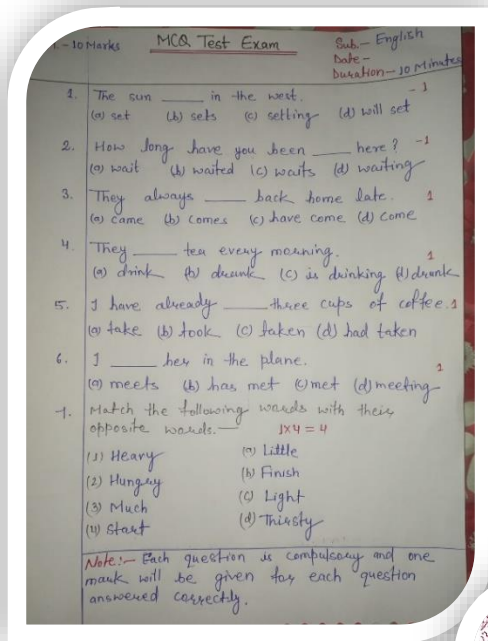 - 10 Marks
MCQ Test Exam
Sub.- English
Date -
Duration- 10 Minutes
1. The sun ____ in the west. - 1
(a) set (b) sets (c) setting (d) will set
2. How long have you been ____ here? -1
(a) wait (b) waited (c) waits (d) waiting
3. They always ____ back home late. 1
(a) came (b) comes (c) have come (d) come
4. They ____ tea every morning. 1
(a) drink (b) drunk (c) is drinking (d) drank
5. I have already ____ three cups of coffee. 1
(a) take (b) took (c) taken (d) had taken
6. I ____ her in the plane. 1
(a) meets (b) has met (c) met (d) meeting
7. Match the following words with their
opposite words.- 1x4 = 4
(1) Heavy (a) Little
(2) Hungry (b) Finish
(3) Much (c) Light
(4) Start (d) Thirsty
Note:- Each question is compulsory and one
mark will be given for each question
answered correctly.